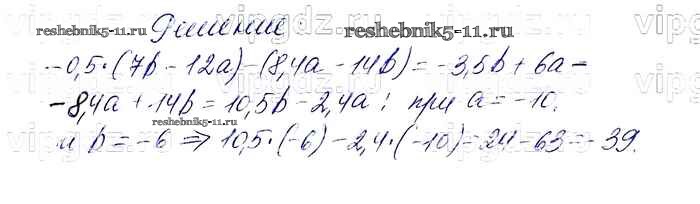 Решение
reshebnik5-11.ru
reshebnik5-11.ru
-0,5·(7b-12a)-(8,4a-14b)=-3,5b+6a-
-8,4a+14b=10,5b-2,4a; при a=-10.
reshebnik5-11.ru
и b=-6 ⇒ 10,5·(-6)-2,4·(-10)=24-63=-39.